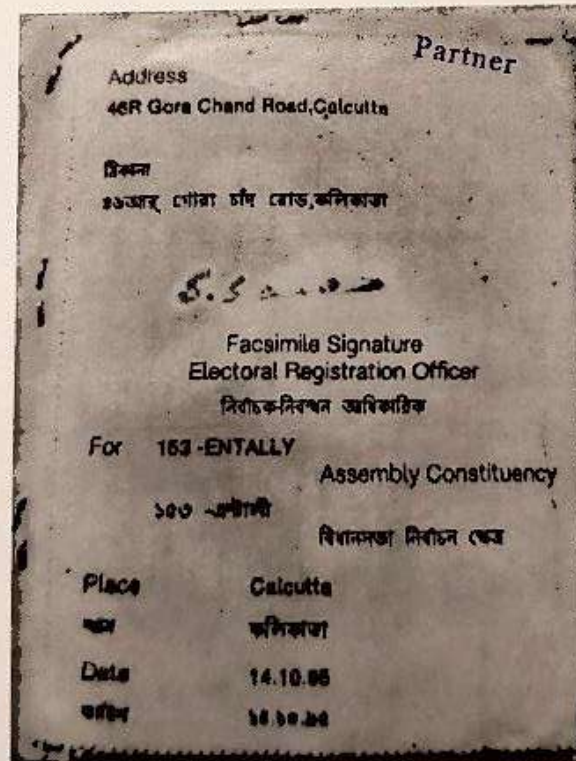 Partner
Address
46R Gora Chand Road,Calcutta
ঠিকানা
৪৬আর্ গোরা চাঁদ রোড,কলিকাতা
Facsimile Signature
Electoral Registration Officer
নির্বাচক-নিবন্ধন আধিকারিক
For 153-ENTALLY
Assembly Constituency
১৫৩
বিধানসভা নির্বাচন ক্ষেত্র
Place Calcutta
কলিকাতা
Date 14.10.95
তারিখ ১৪.১০.৯৫